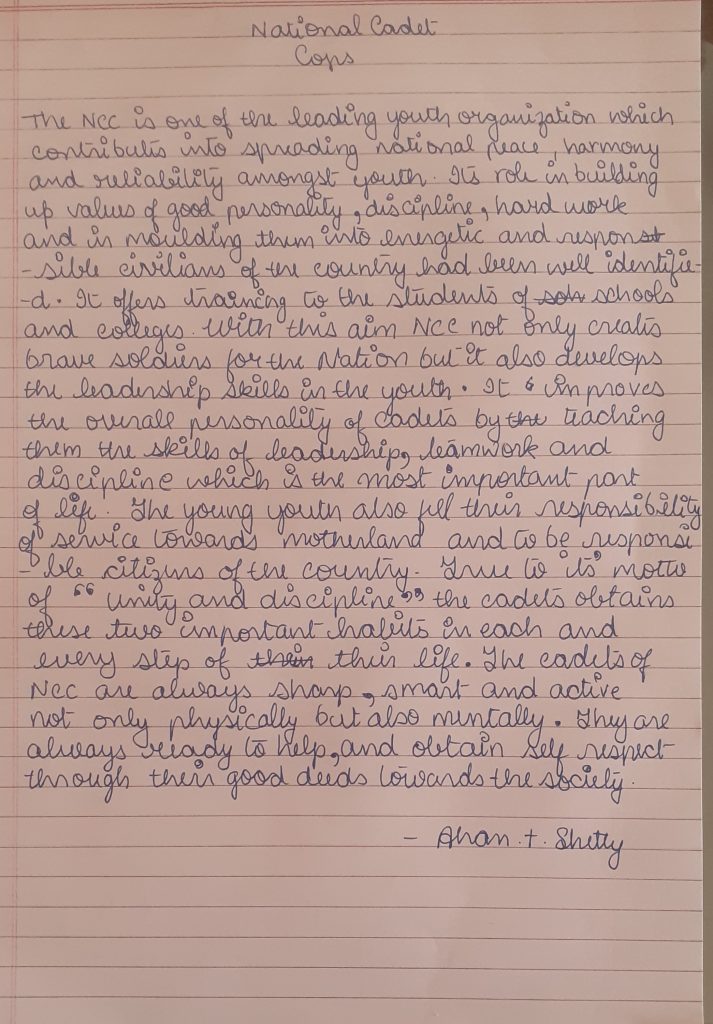 National Cadet
Cops
The NCC is one of the leading youth organization which
contributes into spreading national peace, harmony
and reliability amongst youth. Its role in building
up values of good personality, discipline, hard work
and in moulding them into energetic and respon
-sible civilians of the country had been well identifie-
-d. It offers training to the students of schools
and colleges. With this aim NCC not only creates
brave soldiers for the Nation but it also develops
the leadership skills in the youth. It improves
the overall personality of cadets by teaching
them the skills of leadership, teamwork and
discipline which is the most important part
of life. The young youth also fell their responsibility
of service towards motherland and to be responsi
-ble citizens of the country. True to its motto
of "unity and discipline" the cadets obtains
these two important habits in each and
every step of their life. The cadets of
NCC are always sharp, smart and active
not only physically but also mentally. They are
always ready to help, and obtain self respect
through their good deeds towards the society.
- Ahan .t. Shetty